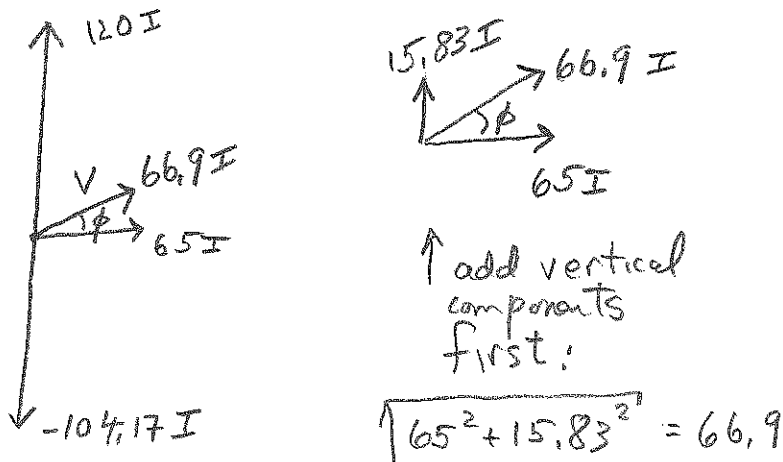 120I
V 66.9I
ϕ
65I
-104.17I
15.83I
66.9 I
ϕ
65I
↑ add vertical
components
first:
√65²+15.83² = 66.9